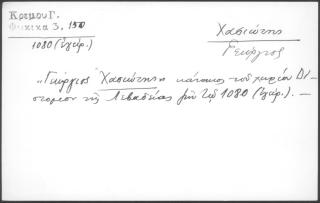 Κρεμου Γ.
Φωκικα 3, 150
1080 (ἐγείρ.)
Χασιώτης
Γεώργιος
„Γεώργιος Χασιώτης κάτοικος τοῦ χωρίου Δί-
στομον τῆς Λεβαδείας μὲ τῷ 1080 (ἐγείρ.).—